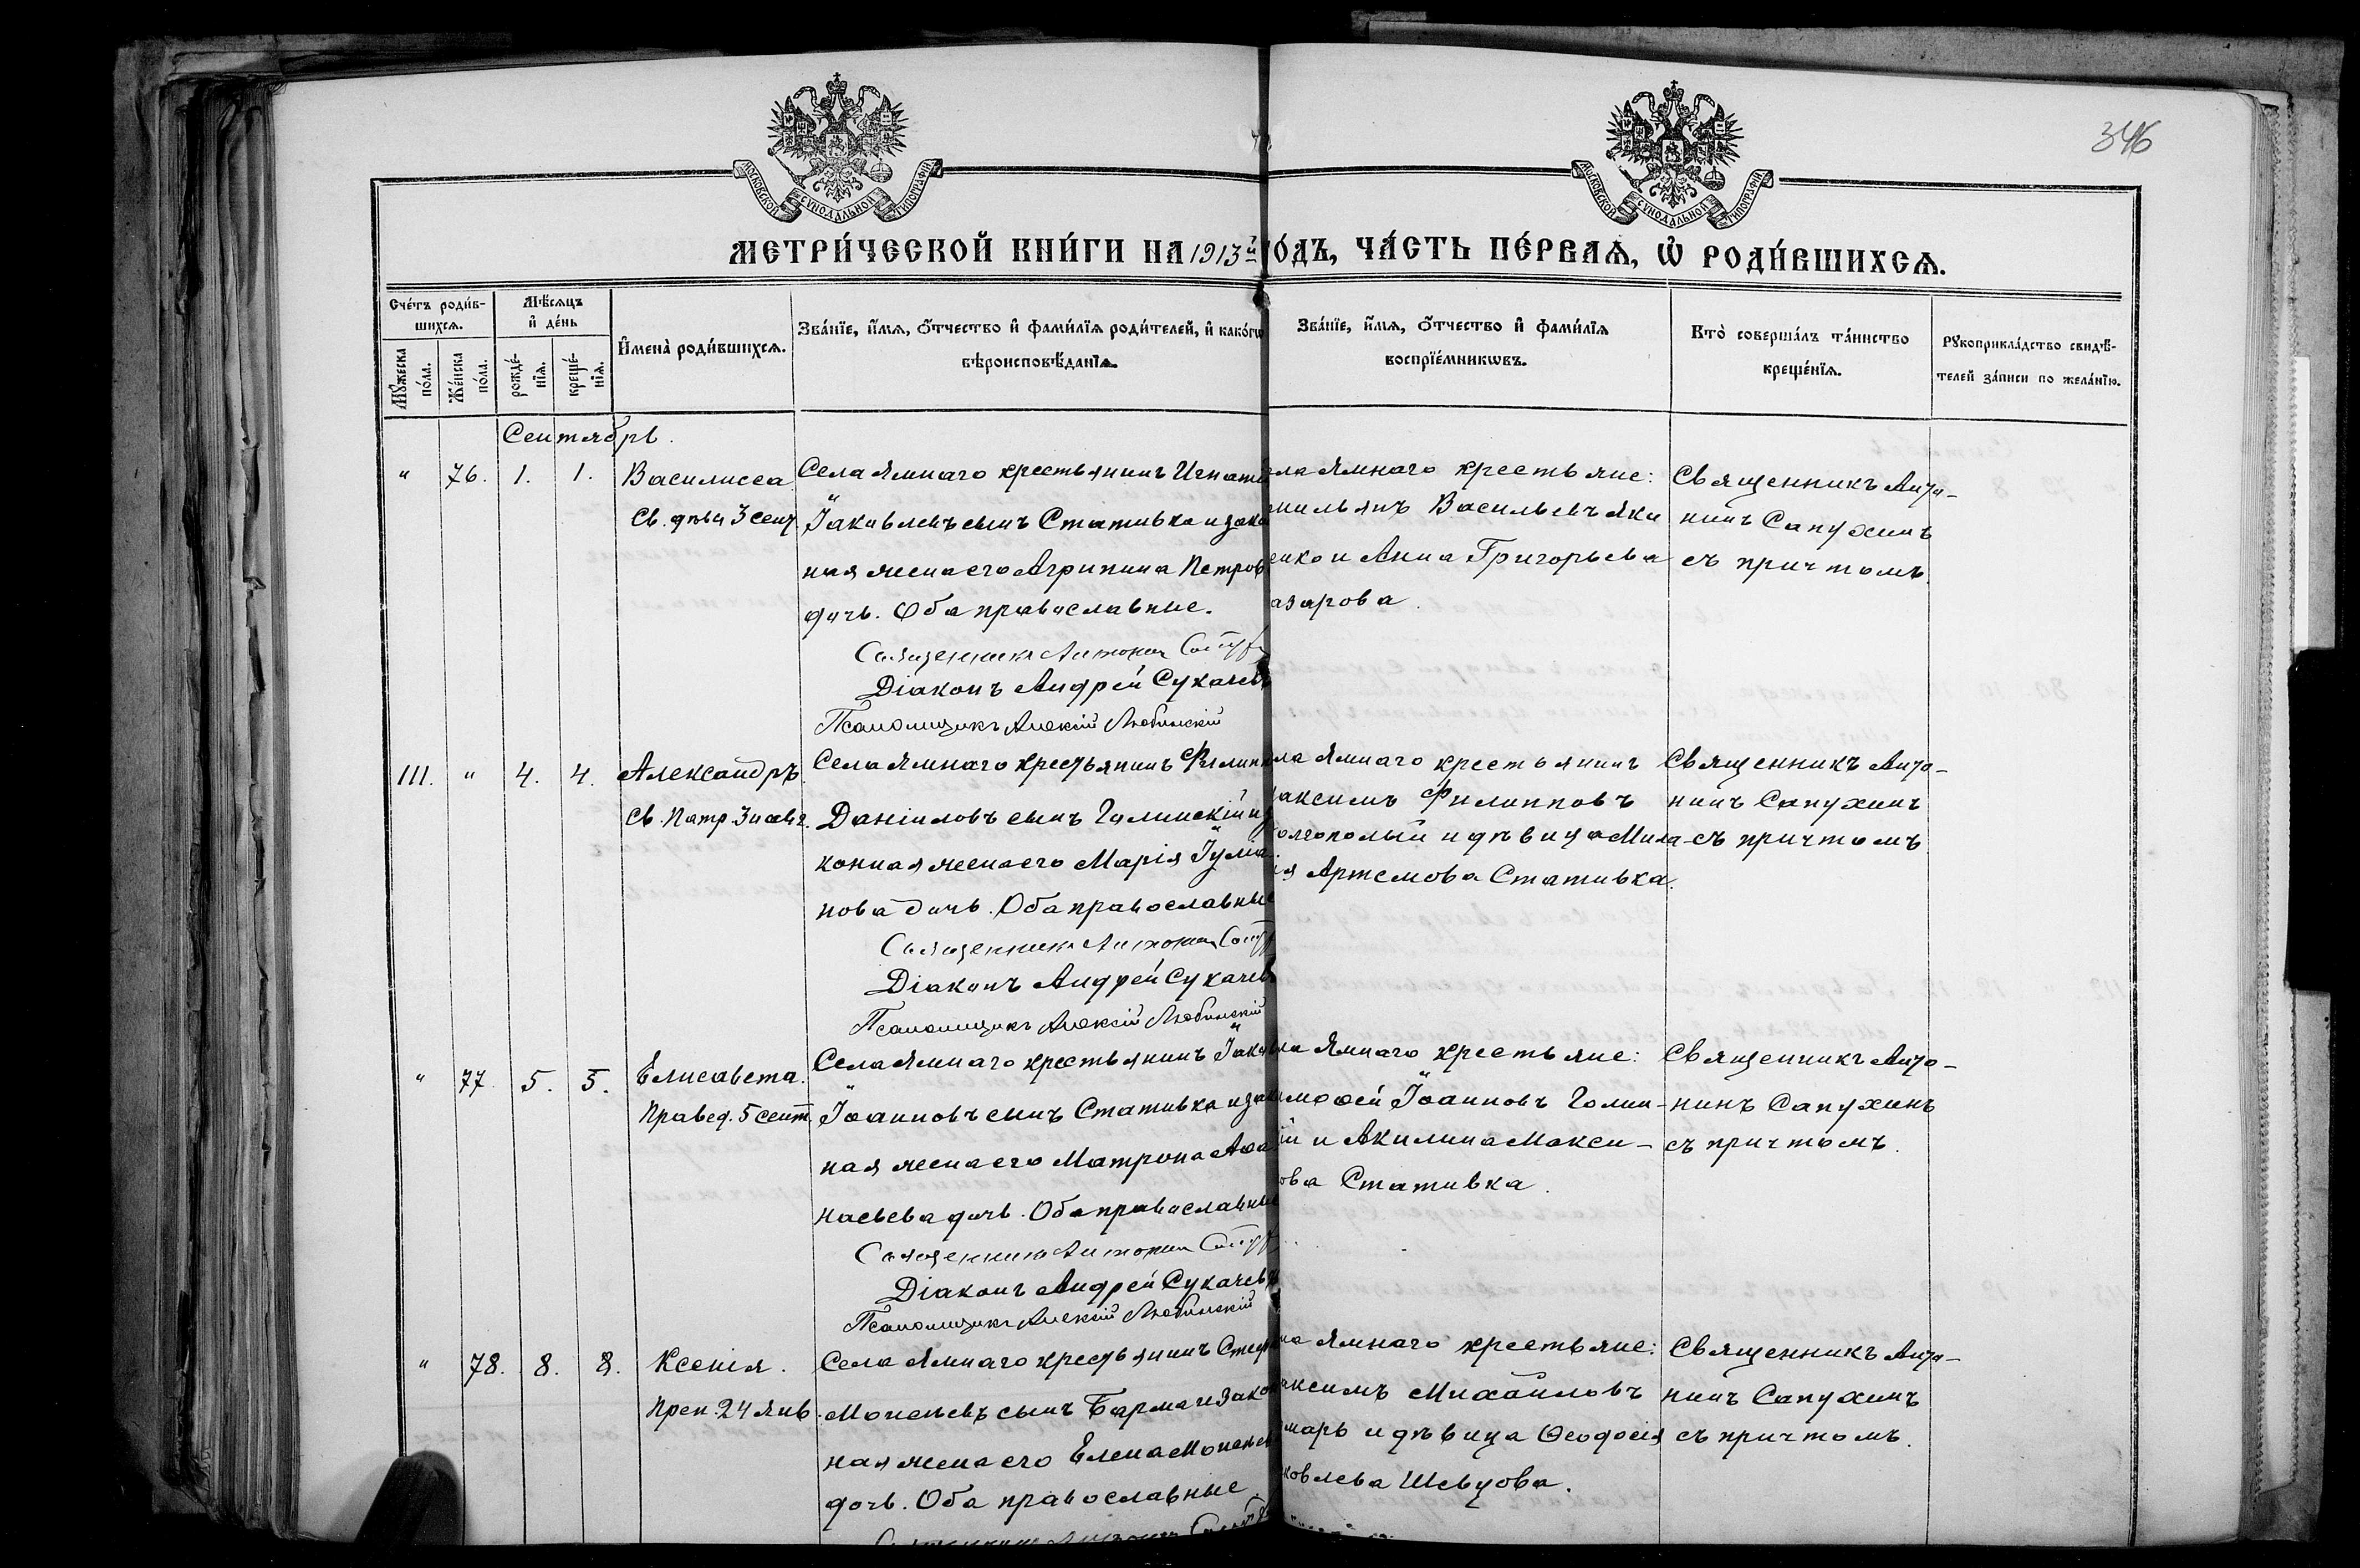 346
МОСКОВСКОЙ СѴНОДАЛЬНОЙ ТИПОГРАФІИ
МОСКОВСКОЙ СѴНОДАЛЬНОЙ ТИПОГРАФІИ
МЕТРИ́ЧЕСКОЙ КНИ́ГИ НА 1913й го́дъ, ЧА́СТЬ ПЕ́РВАѦ, Ѡ҆ РОДИ́ВШИХСѦ.
Сче́тъ роди́в-
шихсѧ.
Мꙋ́жеска по́ла.
Же́нска по́ла.
Мѣ́сѧцъ
и҆ де́нь
рожде́-
нїѧ.
креще́-
нїѧ.
И҆мена̀ роди́вшихсѧ.
Зва́нїе, и҆́мѧ, ѻ҆́тчество и҆ фами́лїѧ роди́телей, и҆ како́гѡ
вѣроисповѣ́данїѧ.
Зва́нїе, и҆́мѧ, ѻ҆́тчество и҆ фами́лїѧ
воспрїе́мникѡвъ.
Кто̀ соверша́лъ та́инство
креще́нїѧ.
Рꙋкоприкла́дство свидѣ́-
телей за́писи по жела́нїю.
Сентябрь.
" 76. 1. 1. Василисса
Св. дѣвы 3 сент.
Села Ямнаго крестьянинъ Игнатій
Іаковлевъ сынъ Стативка и зако
ная жена его Агрипина Петров
дочь. Оба православные.
Священникъ Антоній
Діаконъ Андрей Сукачевъ
Псаломщикъ Алексій Любинскій
ла Ямнаго крестьяне:
мильянъ Васильевъ Яки
енко и Анна Григорьева
азарова.
Священникъ Анто-
нинъ Сапухинъ
съ причтомъ.
111. " 4. 4. Александръ.
Св. Патр. 30 авг.
Села Ямнаго крестьянинъ Филипп
Даніиловъ сынъ Голинскій и з
конная жена его Марія Іуліа-
нова дочь. Оба православные
Священникъ Антоній
Діаконъ Андрей Сукачевъ
Псаломщикъ Алексій Любинскій
ла Ямнаго крестьянинъ
аксимъ Филипповъ
олгополый и дѣвица Мила-
ія Артемова Стативка.
Священникъ Анто-
нинъ Сапухинъ
съ причтомъ
" 77. 5. 5. Елисавета.
Правед. 5 сент.
Села Ямнаго крестьянинъ Іаков
Іоанновъ сынъ Стативка и зак
ная жена его Матрона Аѳа
насьева дочь. Оба православные
Священникъ Антоній
Діаконъ Андрей Сукачевъ
Псаломщикъ Алексій Любинскій
ла Ямнаго крестьяне:
имоѳей Іоанновъ Голин-
ій и Акилина Макси-
ова Стативка.
Священникъ Анто-
нинъ Сапухинъ
съ причтомъ.
" 78. 8. 8. Ксенія.
Преп. 24 янв.
Села Ямнаго крестьянинъ Стеф
Моисеевъ сынъ Бармаг и закон
ная жена его Елена Моисеев
дочь. Оба православные.
ла Ямнаго крестьяне:
аксимъ Михаиловъ
марь и дѣвица Ѳеодосія
ковлева Шевцова.
Священникъ Анто-
нинъ Сапухинъ
съ причтомъ.